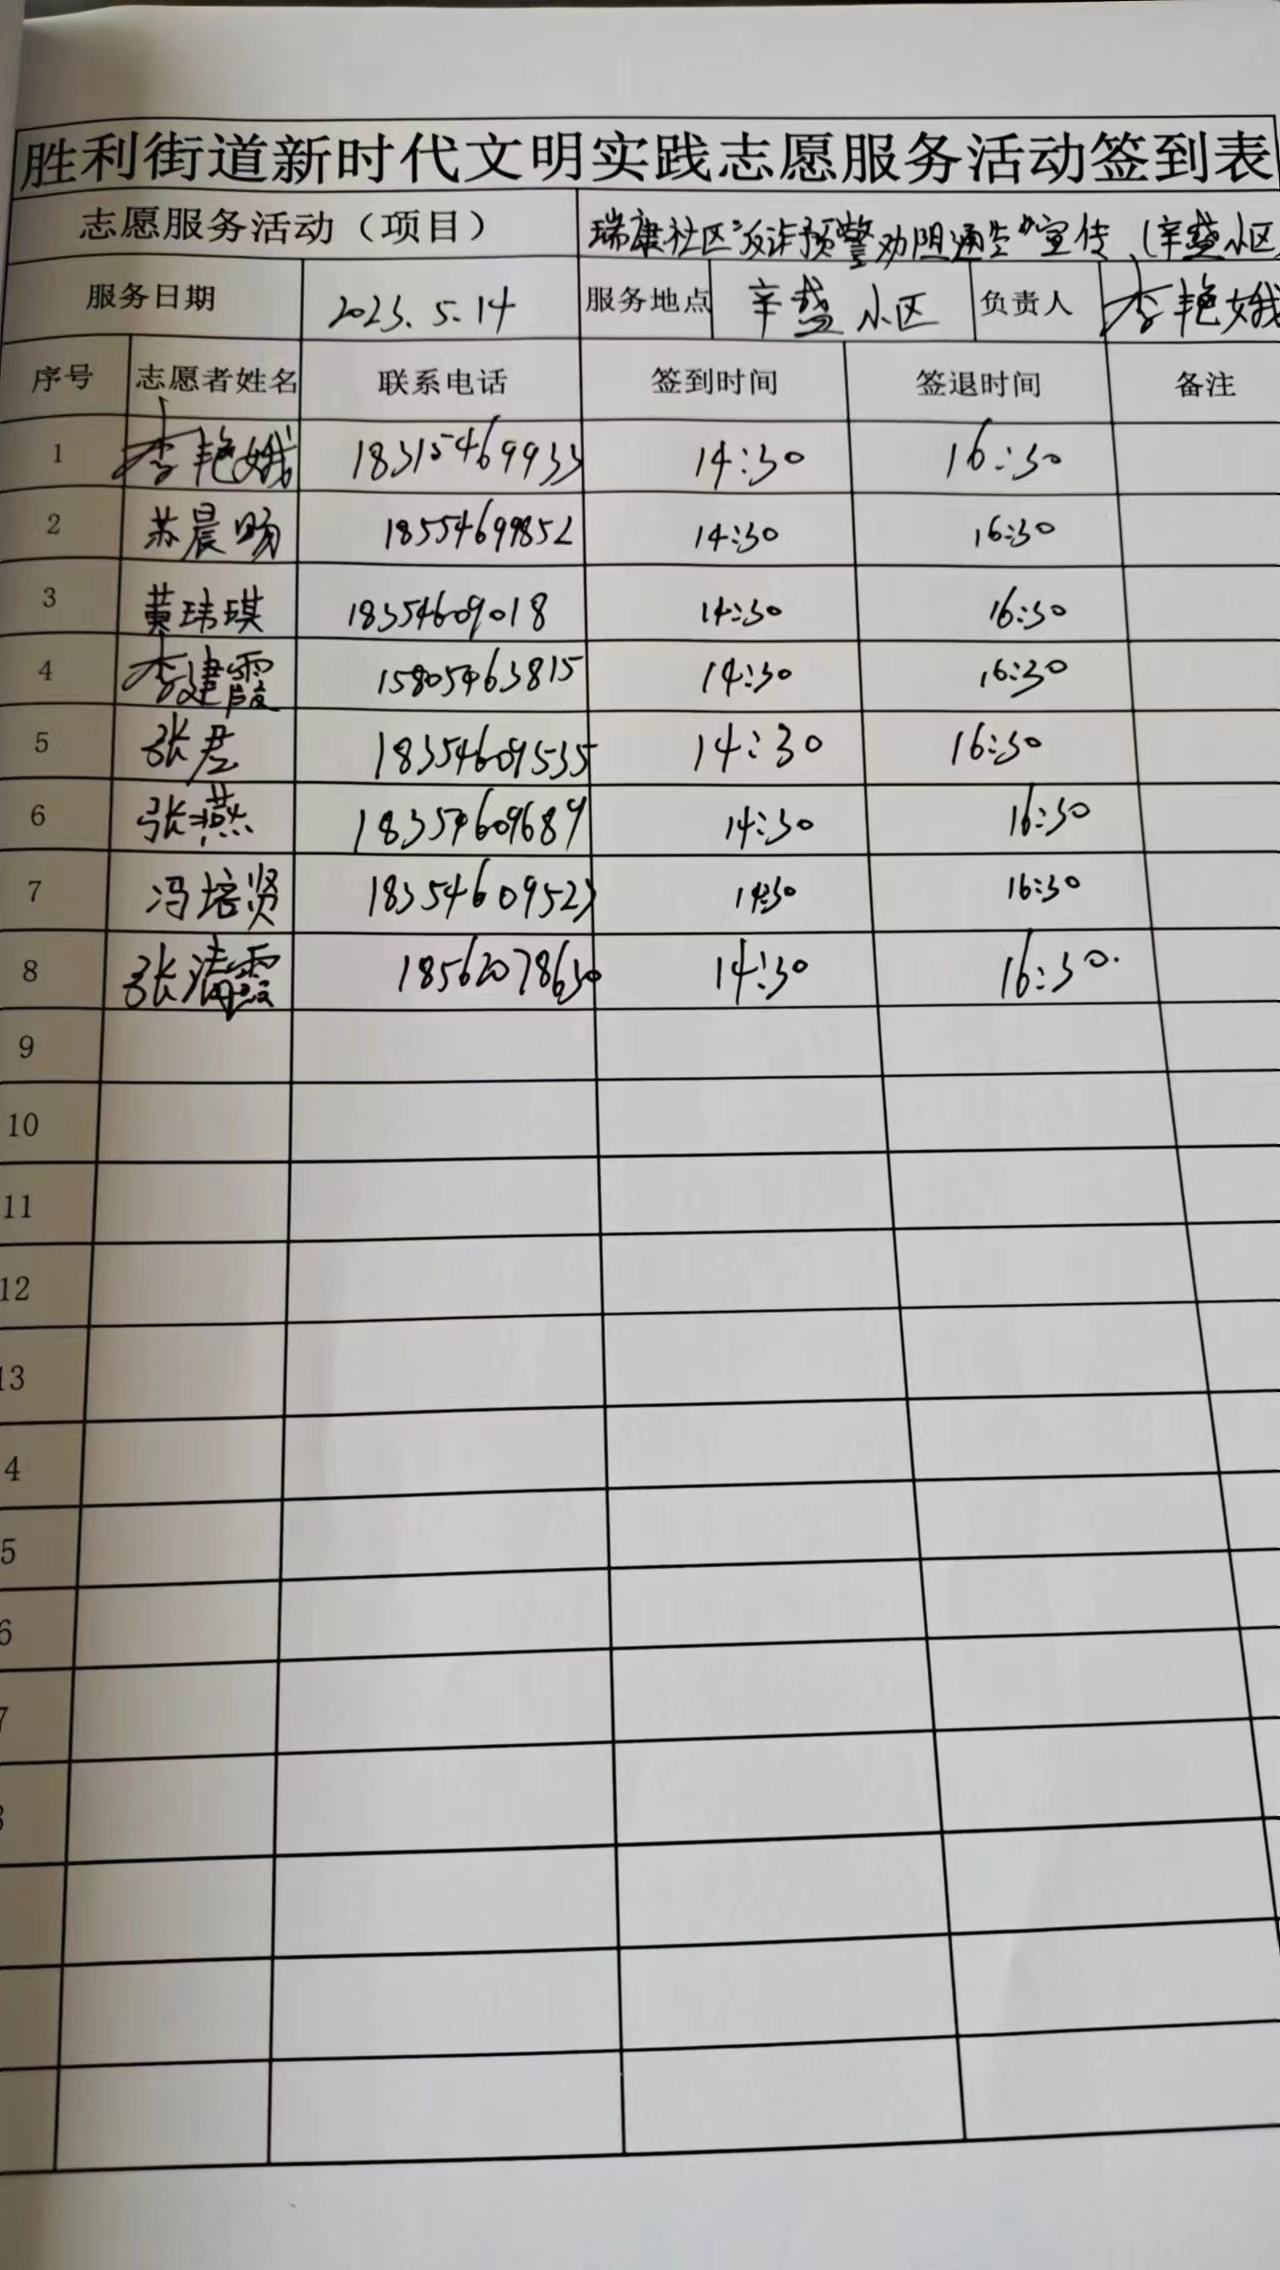 胜利街道新时代文明实践志愿服务活动签到表
志愿服务活动（项目） 瑞康社区“反诈预警劝阻通告”宣传（辛盛小区
服务日期 2023.5.14 服务地点 辛盛小区 负责人 李艳娥
序号 志愿者姓名 联系电话 签到时间 签退时间 备注
1 李艳娥 18315469933 14:30 16:30
2 苏晨旸 18554699852 14:30 16:30
3 黄玮琪 18354609018 14:30 16:30
4 李建霞 15805463815 14:30 16:30
5 张君 18354609535 14:30 16:30
6 张燕 18354609689 14:30 16:30
7 冯培贤 18354609523 14:30 16:30
8 张清霞 18562078630 14:30 16:30.
9
10
11
12
13
4
5
6
7